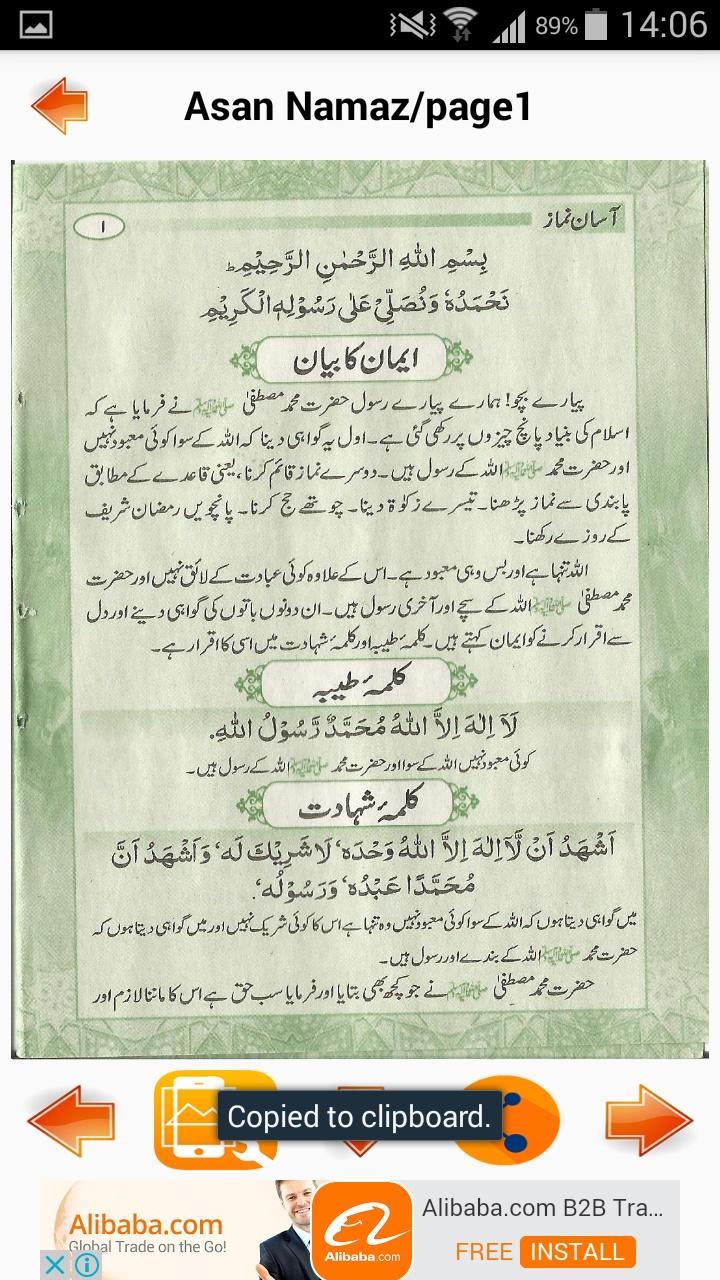 89% 14:06
Asan Namaz/page1
آسان نماز
۱
بِسْمِ اللهِ الرَّحْمٰنِ الرَّحِيْمِ ط
نَحْمَدُهٗ وَنُصَلِّیْ عَلٰی رَسُوْلِهِ الْكَرِيْمِ
ایمان کا بیان
پیارے بچو! ہمارے پیارے رسول حضرت محمد مصطفیٰ ﷺ نے فرمایا ہے کہ
اسلام کی بنیاد پانچ چیزوں پر رکھی گئی ہے۔ اول یہ گواہی دینا کہ اللہ کے سوا کوئی معبود نہیں
اور حضرت محمد ﷺ اللہ کے رسول ہیں۔ دوسرے نماز قائم کرنا، یعنی قاعدے کے مطابق
پابندی سے نماز پڑھنا۔ تیسرے زکوٰة دینا۔ چوتھے حج کرنا۔ پانچویں رمضان شریف
کے روزے رکھنا۔
اللہ تنہا ہے اور بس وہی معبود ہے۔ اس کے علاوہ کوئی عبادت کے لائق نہیں اور حضرت
محمد مصطفیٰ ﷺ اللہ کے سچے اور آخری رسول ہیں۔ ان دونوں باتوں کی گواہی دینے اور دل
سے اقرار کرنے کو ایمان کہتے ہیں۔ کلمۂ طیبہ اور کلمۂ شہادت میں اسی کا اقرار ہے۔
کلمۂ طیبہ
لَآ اِلٰهَ اِلاَّ اللهُ مُحَمَّدٌ رَّسُوْلُ اللهِ.
کوئی معبود نہیں اللہ کے سوا اور حضرت محمد ﷺ اللہ کے رسول ہیں۔
کلمۂ شہادت
اَشْهَدُ اَنْ لَّآ اِلٰهَ اِلاَّ اللهُ وَحْدَه‘ لَا شَرِيْكَ لَه‘ وَاَشْهَدُ اَنَّ
مُحَمَّدًا عَبْدُه‘ وَرَسُوْلُه‘.
میں گواہی دیتا ہوں کہ اللہ کے سوا کوئی معبود نہیں وہ تنہا ہے اس کا کوئی شریک نہیں اور میں گواہی دیتا ہوں کہ
حضرت محمد ﷺ اللہ کے بندے اور رسول ہیں۔
حضرت محمد مصطفیٰ ﷺ نے جو کچھ بھی بتایا اور فرمایا سب حق ہے اس کا ماننا لازم اور
Copied to clipboard.
Alibaba.com
Global Trade on the Go!
Alibaba.com
Alibaba.com B2B Tra...
FREE INSTALL